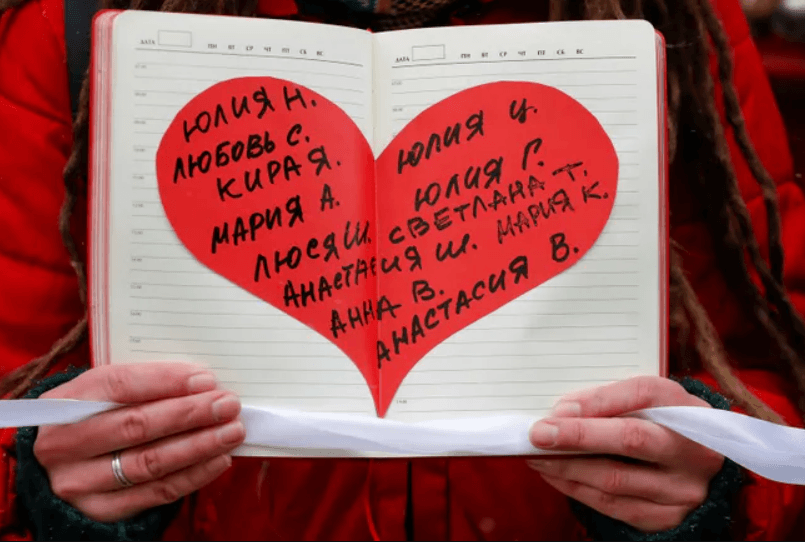 ДАТА
ПН ВТ СР ЧТ ПТ СБ ВС
ДАТА
ПН ВТ СР ЧТ ПТ СБ ВС
ЮЛИЯ Н.
ЛЮБОВЬ С.
КИРА Я.
МАРИЯ А.
ЛЮСЯ Ш.
АНАСТАСИЯ Ш.
АННА В.
ЮЛИЯ Ц.
ЮЛИЯ Г.
СВЕТЛАНА Т.
МАРИЯ К.
АНАСТАСИЯ В.